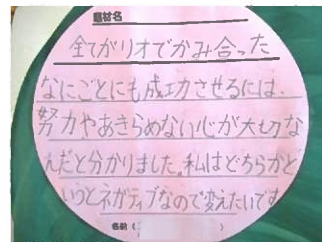 題材名
全てがリオでかみ合った
なにごとにも成功させるには、
努力やあきらめない心が大切な
んだと分かりました。私はどちらかと
いうとネガティブなので変えたいです
名前（